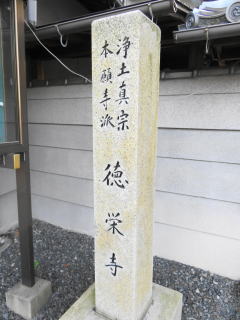 浄土真宗
本願寺派
徳栄寺